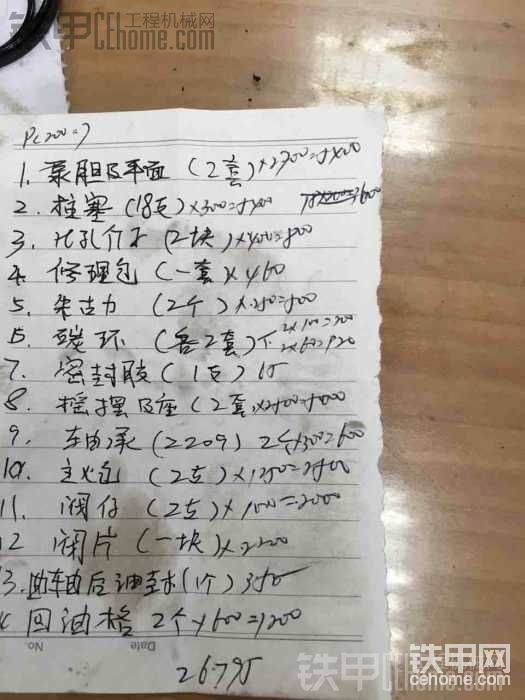 铁甲 工程机械网
Cehome.com
PC200-7
1. 泵胆及平面 (2套)×2700=5400
2. 柱塞 (18支)×300=5400
3. 九孔介子 (2块)×400=800
4. 修理包 (一套)×460
5. 朱古力 (2个)×250=500
6. 碳环 (各2套) 2×100=200
2×60=120
7. 密封胶 (1支) 15
8. 摇摆及座 (2套)×2500=5000
9. 轴承 (2209) 2个×300=600
10. 主心 (2支)×1250=2500
11. 阀仔 (2支)×1000=2000
12 闸片 (一块)×2200
13. 曲轴后油封 (1个) 350
14 回油格 2个×600=1200
No. Date
26795
铁甲网
cehome.com
铁甲 Cehome.com